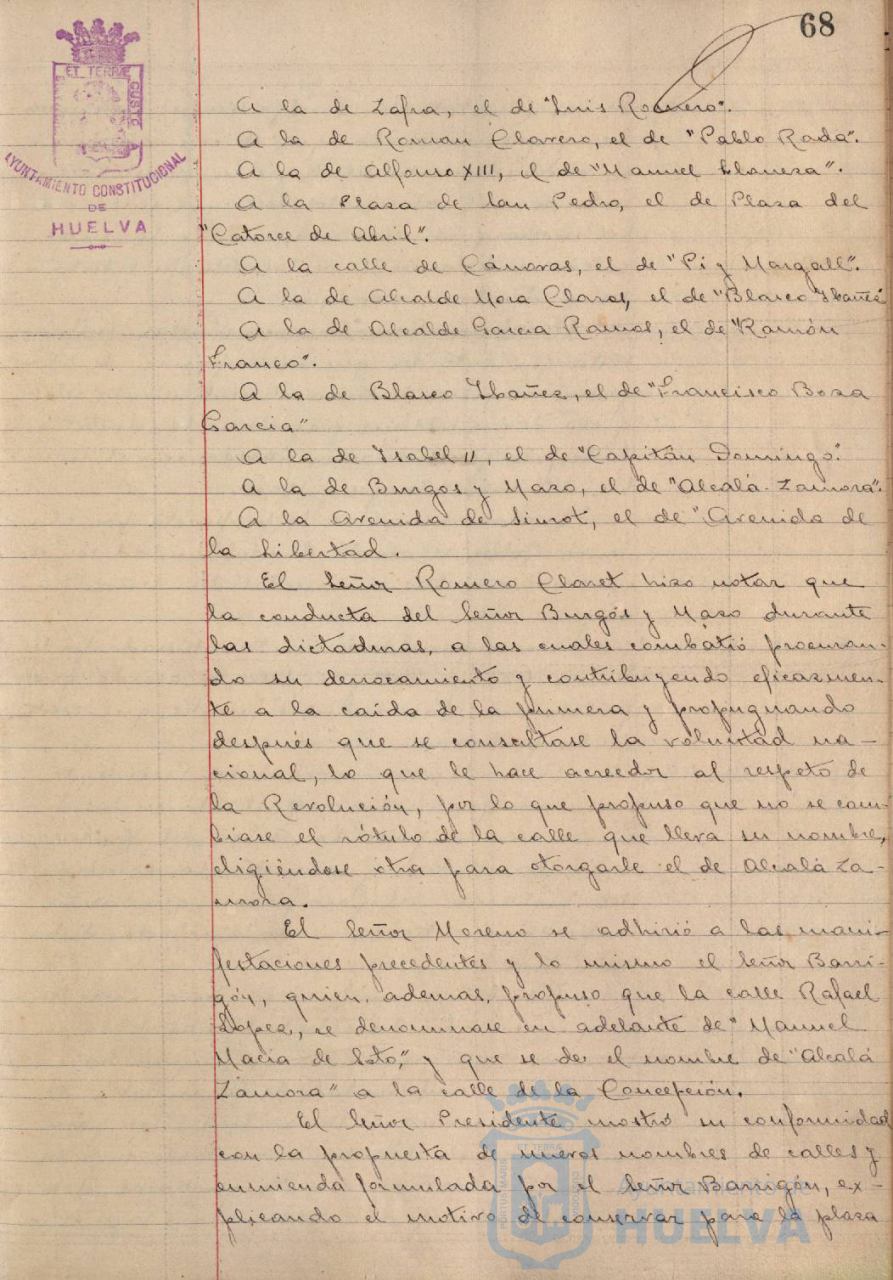 68
ET TERRÆ
CUSTO
AYUNTAMIENTO CONSTITUCIONAL
DE
HUELVA
A la de Zafra, el de "Luis Romero".
A la de Roman Clavero, el de "Pablo Rada".
A la de Alfonso XIII, el de "Manuel Llaneza".
A la Plaza de San Pedro, el de Plaza del
"Catorce de Abril".
A la calle de Cánovas, el de "Pi y Margall".
A la de Alcalde Mora Claros, el de "Blasco Ibañez
A la de Alcalde Garcia Ramos, el de "Ramón
Franco".
A la de Blasco Ibañez, el de "Francisco Boza
Garcia"
A la de Isabel II, el de "Capitán Domingo".
A la de Burgos y Mazo, el de "Alcalá-Zamora".
A la Avenida de Siurot, el de "Avenida de
la Libertad.
El Señor Romero Claret hizo notar que
la conducta del Señor Burgos y Mazo durante
las dictaduras, a las cuales combatió procuran-
do su derrocamiento y contribuyendo eficazmen-
te a la caída de la primera y propugnando
después que se consultase la voluntad na-
cional, lo que le hace acreedor al respeto de
la Revolución, por lo que propuso que no se cam-
biase el rótulo de la calle que lleva su nombre,
eligiéndose otra para otorgarle el de Alcalá Za-
mora.
El Señor Moreno se adhirió a las mani-
festaciones precedentes y lo mismo el Señor Barri-
gón, quien, ademas, propuso que la calle Rafael
Lopez, se denominase en adelante de "Manuel
Macia de Soto", y que se de el nombre de "Alcalá
Zamora" a la calle de la Concepción.
El Señor Presidente mostró su conformidad
con la propuesta de nuevos nombres de calles y
enmienda formulada por el Señor Barrigón, ex-
plicando el motivo de conservar para la plaza
ET TERRÆ
Ayuntamiento de
HUELVA